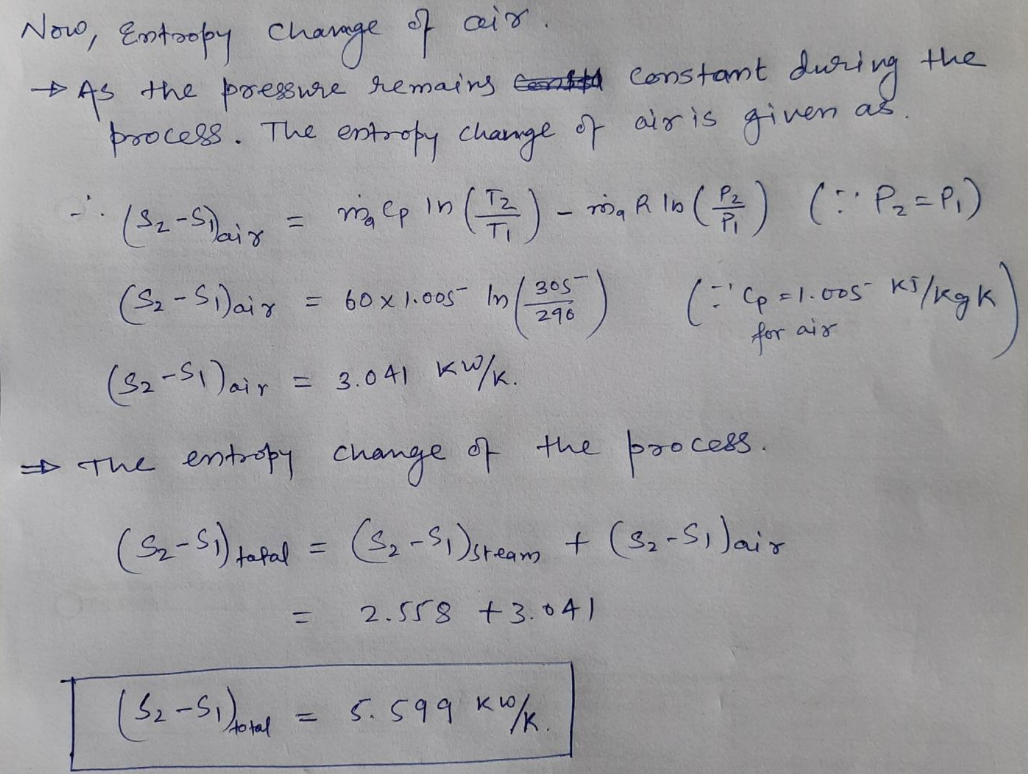 Now, Entropy change of air.
⇒ As the pressure remains constant during the
process. The entropy change of air is given as.
∴ (S₂-S₁)air = ṁₐ Cp ln (T₂/T₁) - ṁₐ R ln (P₂/P₁) (∵ P₂ = P₁)
(S₂-S₁)air = 60 x 1.005 ln (305/290) (∵ Cp = 1.005 KJ/KgK for air)
(S₂-S₁)air = 3.041 KW/K.
⇒ The entropy change of the process.
(S₂-S₁)total = (S₂-S₁)steam + (S₂-S₁)air
= 2.558 + 3.041
(S₂-S₁)total = 5.599 KW/K.